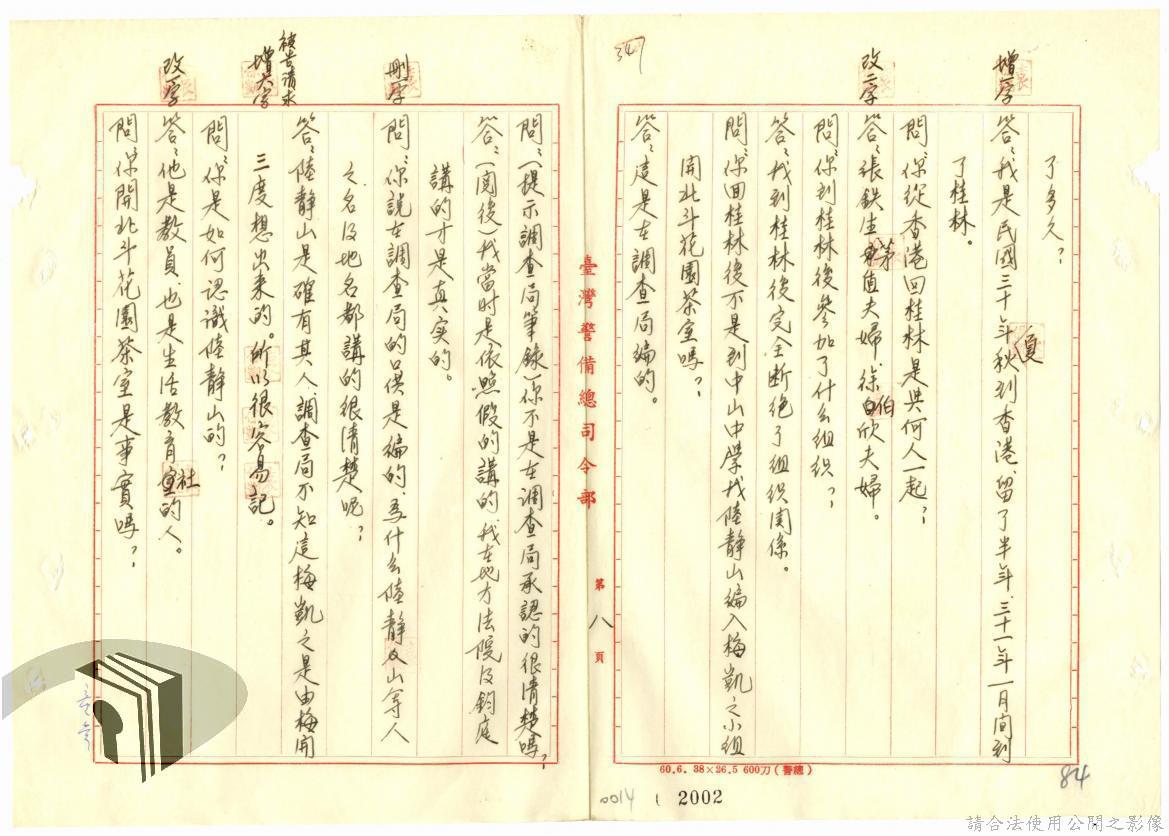 347
了多久？
增一字
答：我是民國三十年秋到香港，留了半年，三十一年一月間到
復
了桂林。
問：你從香港回桂林是與何人一起？
改二字
答：張鉄生夫婦、徐伯欣夫婦。
問：你到桂林後參加了什么組织？
答：我到桂林後完全断绝了組织関係。
問：你回桂林後不是到中山中學找陸静山編入梅凱之小組
開北斗花園茶室嗎？
答：這是在調查局編的。
臺灣警備總司令部
第八頁
問：（提示調查局筆錄）你不是在調查局承認的很清楚嗎？
答：（閱後）我當时是依照假的講的，我在地方法院及鈞庭
講的才是真实的。
刪一字
問：你說在調查局的口供是編的，為什么陸静山等人
之名及地名都講的很清楚呢？
被告請求
增六字
答：陸静山是確有其人，調查局不知這梅凱之是由梅開
三度想出来的。所以很容易記。
問：你是如何認識陸静山的？
改一字
答：他是教員，也是生活教育社的人。
問：你開北斗花園茶室是事實嗎？
60.6. 38×26.5 600刀（警總）
84
0014
2002
請合法使用公開之影像